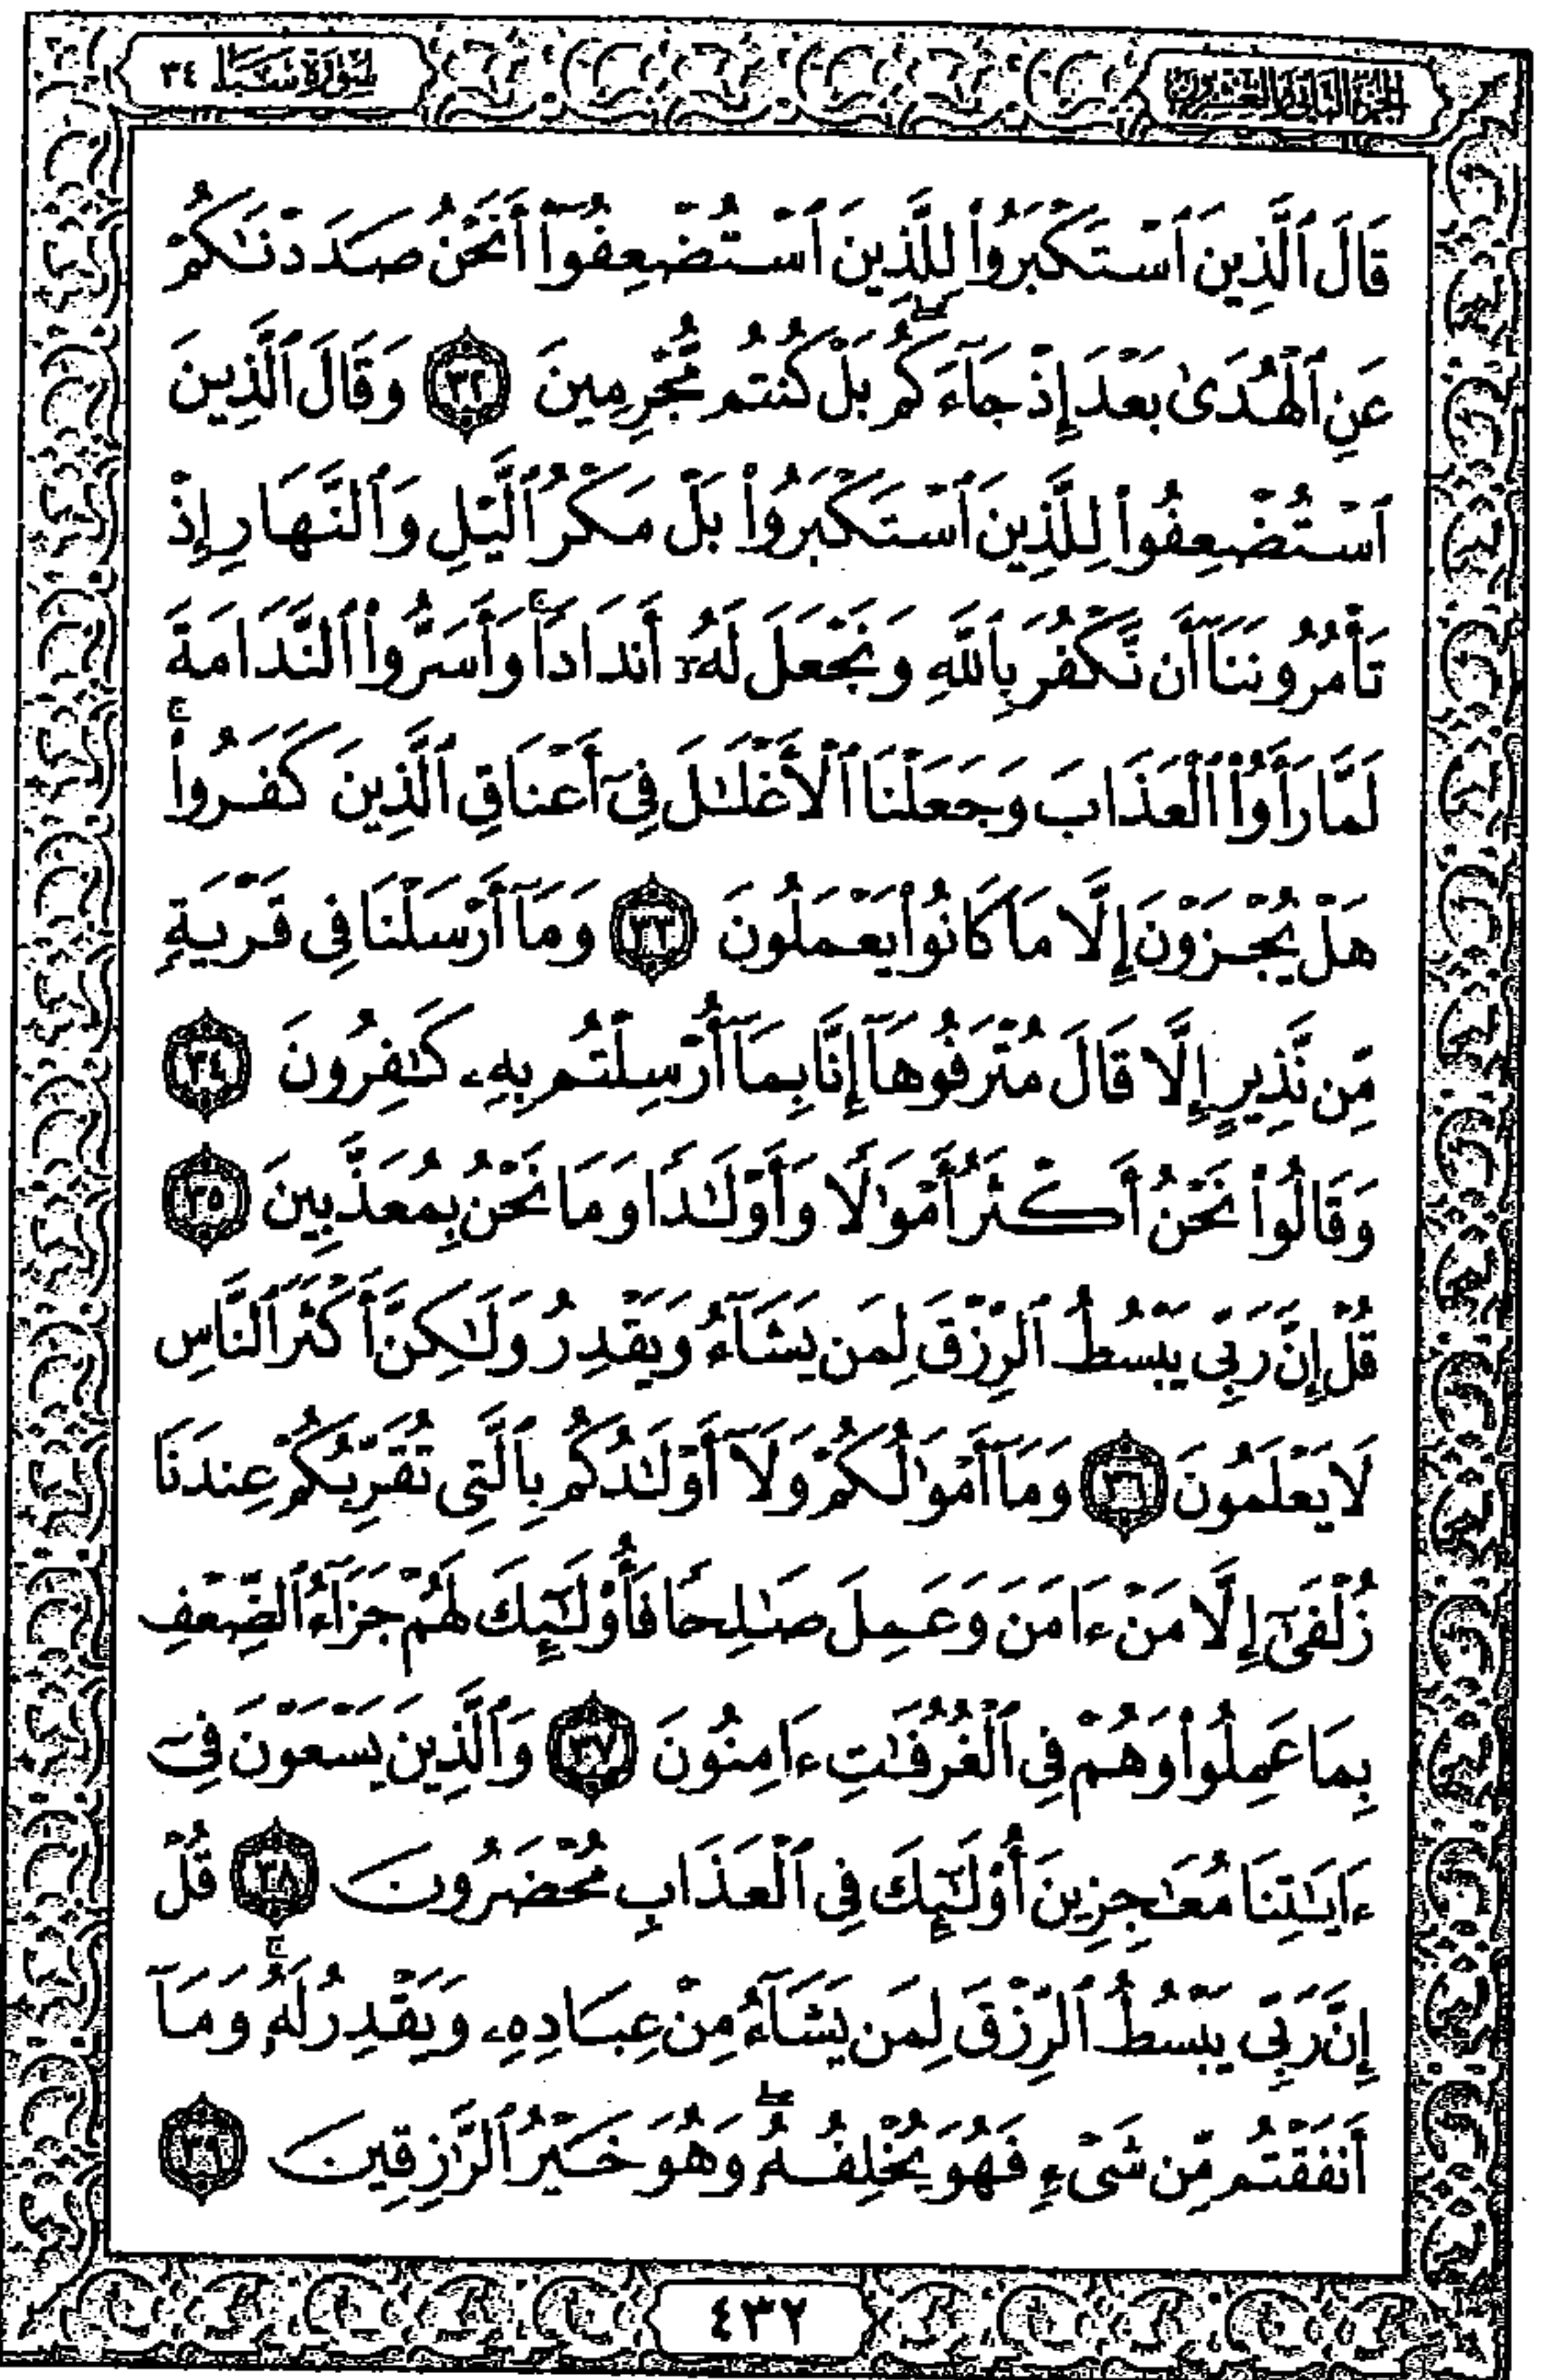 الجزء الثاني والعشرون
سورة سبأ ٣٤
قَالَ ٱلَّذِينَ ٱسْتَكْبَرُوا۟ لِلَّذِينَ ٱسْتُضْعِفُوٓا۟ أَنَحْنُ صَدَدْنَٰكُمْ
عَنِ ٱلْهُدَىٰ بَعْدَ إِذْ جَآءَكُم ۖ بَلْ كُنتُم مُّجْرِمِينَ ٣٢ وَقَالَ ٱلَّذِينَ
ٱسْتُضْعِفُوا۟ لِلَّذِينَ ٱسْتَكْبَرُوا۟ بَلْ مَكْرُ ٱلَّيْلِ وَٱلنَّهَارِ إِذْ
تَأْمُرُونَنَآ أَن نَّكْفُرَ بِٱللَّهِ وَنَجْعَلَ لَهُۥٓ أَندَادًا ۚ وَأَسَرُّوا۟ ٱلنَّدَامَةَ
لَمَّا رَأَوُا۟ ٱلْعَذَابَ وَجَعَلْنَا ٱلْأَغْلَٰلَ فِىٓ أَعْنَاقِ ٱلَّذِينَ كَفَرُوا۟ ۚ
هَلْ يُجْزَوْنَ إِلَّا مَا كَانُوا۟ يَعْمَلُونَ ٣٣ وَمَآ أَرْسَلْنَا فِى قَرْيَةٍ
مِّن نَّذِيرٍ إِلَّا قَالَ مُتْرَفُوهَآ إِنَّا بِمَآ أُرْسِلْتُم بِهِۦ كَٰفِرُونَ ٣٤
وَقَالُوا۟ نَحْنُ أَكْثَرُ أَمْوَٰلًا وَأَوْلَٰدًا وَمَا نَحْنُ بِمُعَذَّبِينَ ٣٥
قُلْ إِنَّ رَبِّى يَبْسُطُ ٱلرِّزْقَ لِمَن يَشَآءُ وَيَقْدِرُ وَلَٰكِنَّ أَكْثَرَ ٱلنَّاسِ
لَا يَعْلَمُونَ ٣٦ وَمَآ أَمْوَٰلُكُمْ وَلَآ أَوْلَٰدُكُم بِٱلَّتِى تُقَرِّبُكُمْ عِندَنَا
زُلْفَىٰٓ إِلَّا مَنْ ءَامَنَ وَعَمِلَ صَٰلِحًا فَأُو۟لَٰٓئِكَ لَهُمْ جَزَآءُ ٱلضِّعْفِ
بِمَا عَمِلُوا۟ وَهُمْ فِى ٱلْغُرُفَٰتِ ءَامِنُونَ ٣٧ وَٱلَّذِينَ يَسْعَوْنَ فِىٓ
ءَايَٰتِنَا مُعَٰجِزِينَ أُو۟لَٰٓئِكَ فِى ٱلْعَذَابِ مُحْضَرُونَ ٣٨ قُلْ
إِنَّ رَبِّى يَبْسُطُ ٱلرِّزْقَ لِمَن يَشَآءُ مِنْ عِبَادِهِۦ وَيَقْدِرُ لَهُۥ ۚ وَمَآ
أَنفَقْتُم مِّن شَىْءٍ فَهُوَ يُخْلِفُهُۥ ۖ وَهُوَ خَيْرُ ٱلرَّٰزِقِينَ ٣٩
٤٣٢